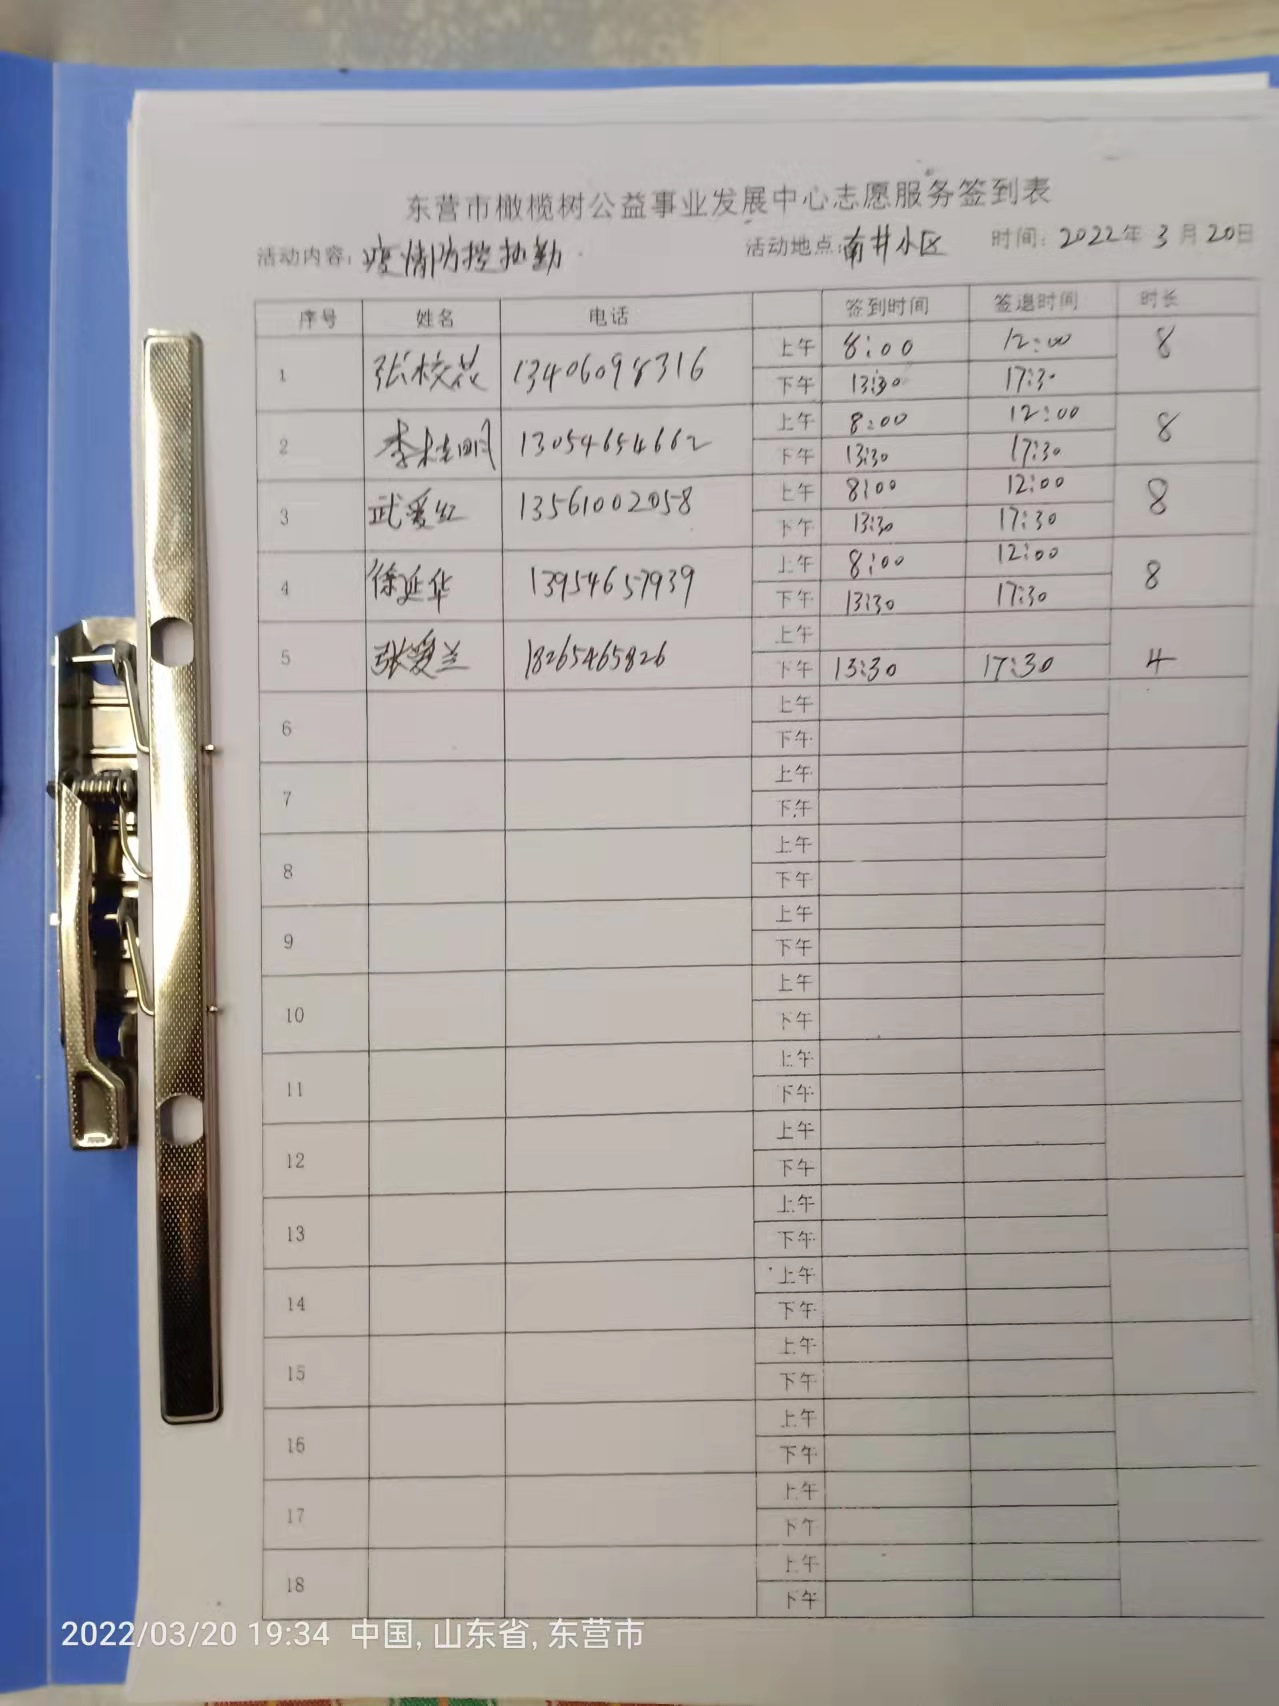 东营市橄榄树公益事业发展中心志愿服务签到表
活动内容：疫情防控执勤 活动地点：南井小区 时间：2022年3月20日
序号 姓名 电话 签到时间 签退时间 时长
1 张校花 13406098316 上午 8:00 12:00 8
下午 13:30 17:30
2 李桂明 13054654662 上午 8:00 12:00 8
下午 13:30 17:30
3 武爱红 13561002058 上午 8:00 12:00 8
下午 13:30 17:30
4 徐延华 13954657939 上午 8:00 12:00 8
下午 13:30 17:30
5 张爱兰 18265465826 上午
下午 13:30 17:30 4
6 上午
下午
7 上午
下午
8 上午
下午
9 上午
下午
10 上午
下午
11 上午
下午
12 上午
下午
13 上午
下午
14 上午
下午
15 上午
下午
16 上午
下午
17 上午
下午
18 上午
下午
2022/03/20 19:34 中国, 山东省, 东营市